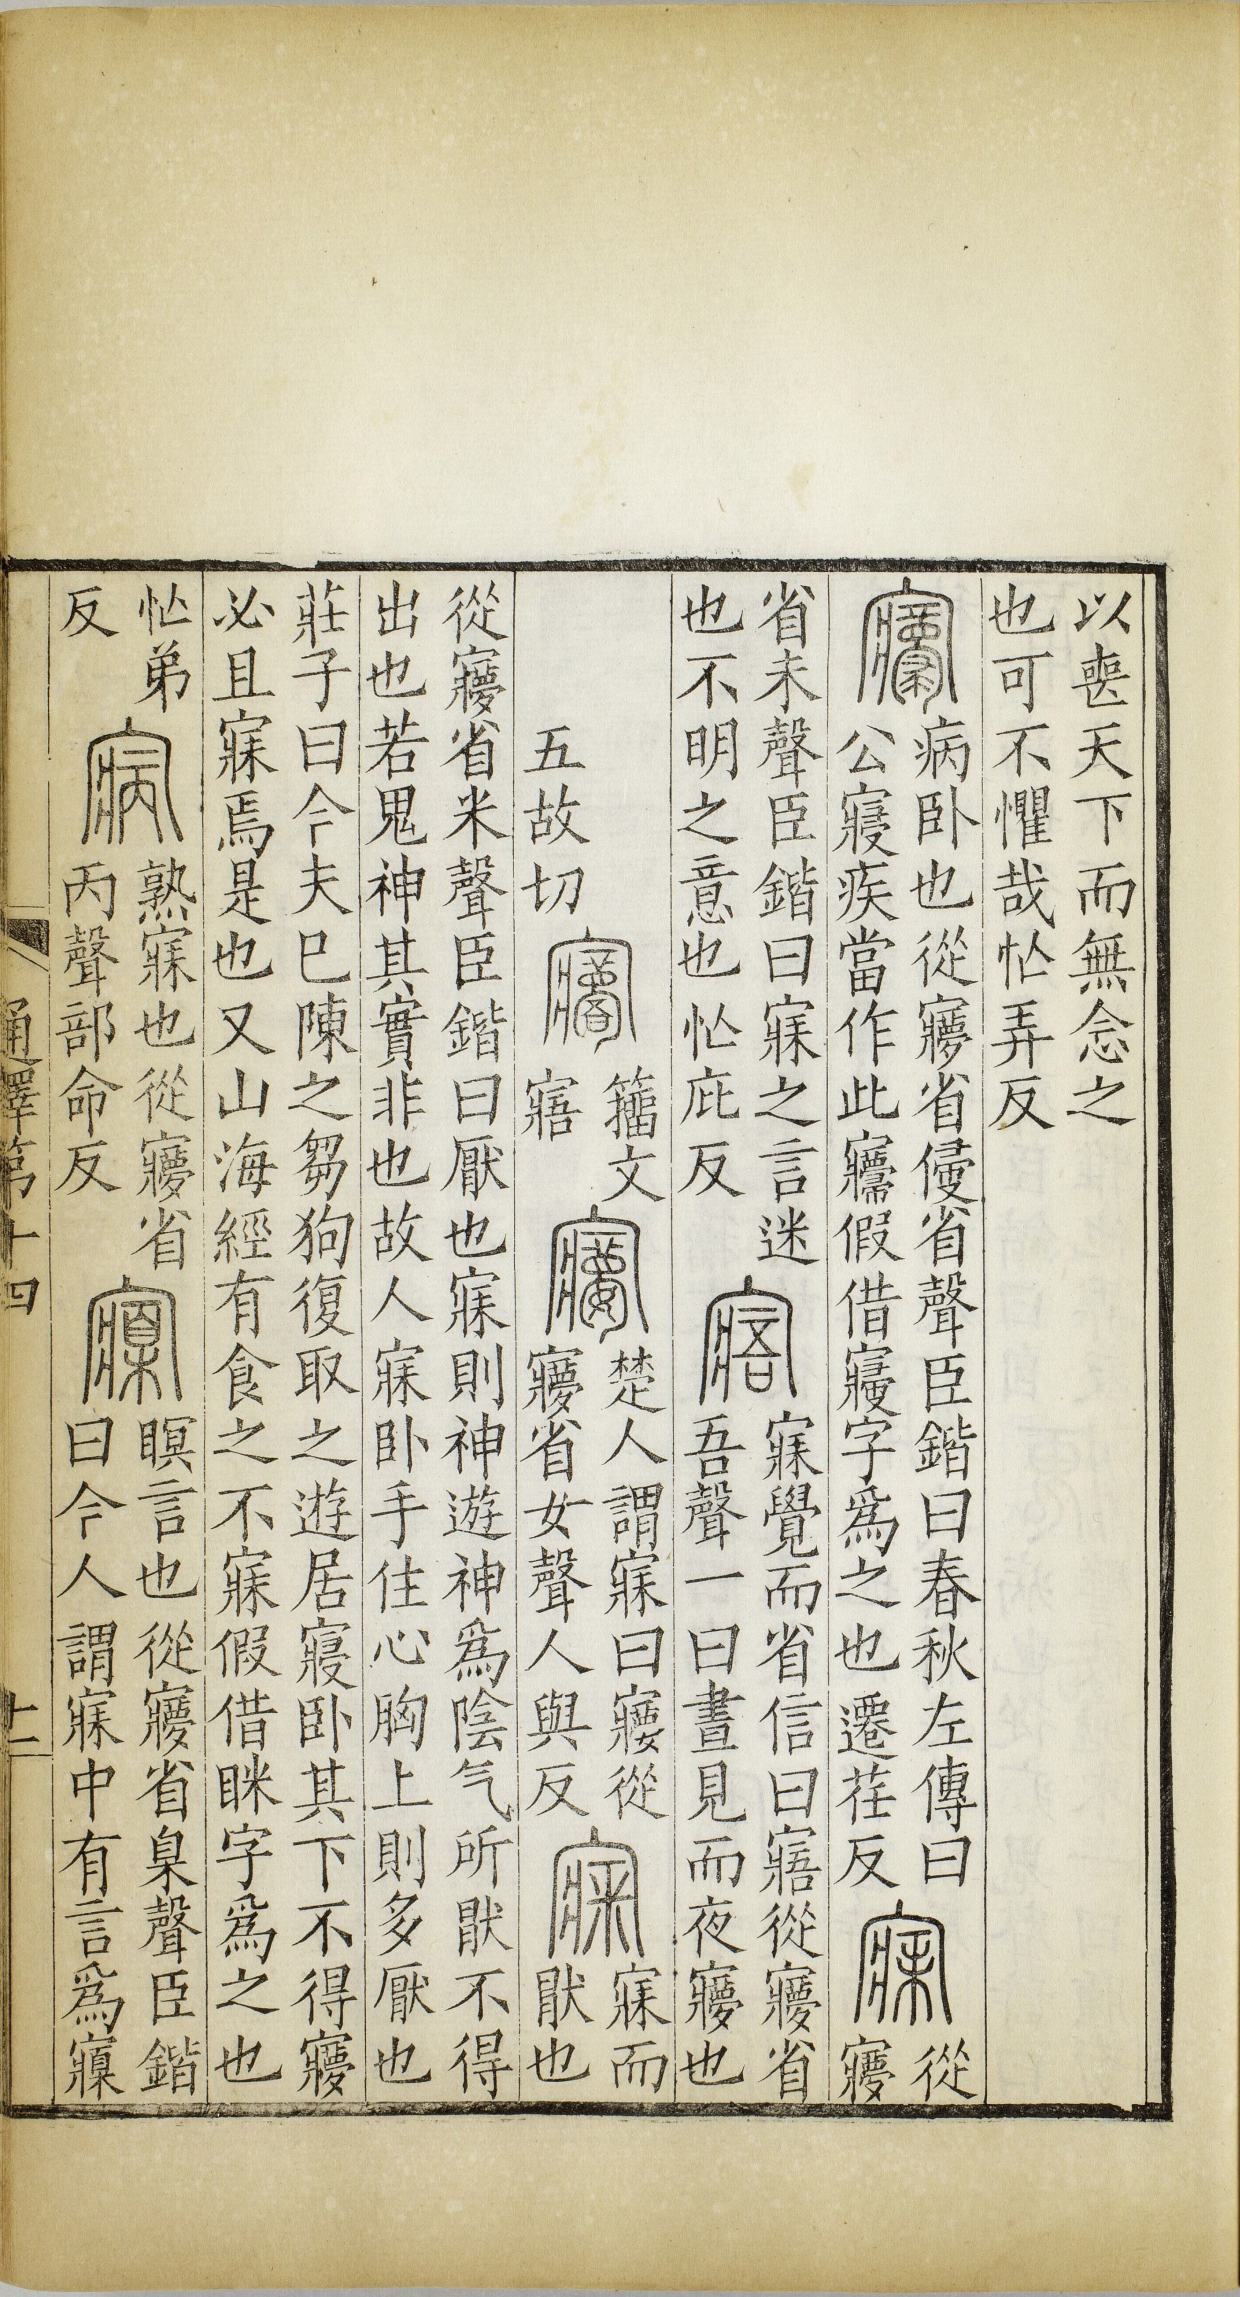 以喪天下而無念之
也可不懼哉忙弄反
㝲病卧也從㝱省㑴省聲臣鍇曰春秋左傳曰
公寢疾當作此㝲假借寢字爲之也遷荏反
寐從㝱
省未聲臣鍇曰寐之言迷
也不明之意也忙庇反
寤寐覺而省信曰寤從㝱省
吾聲一曰晝見而夜㝱也
五故切
籒文寤
㝧楚人謂寐曰㝧從
㝱省女聲人與反
㝥寐而猒也
從㝱省米聲臣鍇曰厭也寐則神遊神爲陰气所猒不得
出也若鬼神其實非也故人寐卧手住心胸上則多厭也
莊子曰今夫巳陳之芻狗復取之遊居寢卧其下不得㝱
必且寐焉是也又山海經有食之不寐假借眯字爲之也
忙弟反
寎熟寐也從㝱省
丙聲部命反
寱瞑言也從㝱省臬聲臣鍇
曰今人謂寐中有言爲寱
通釋第十四
十二